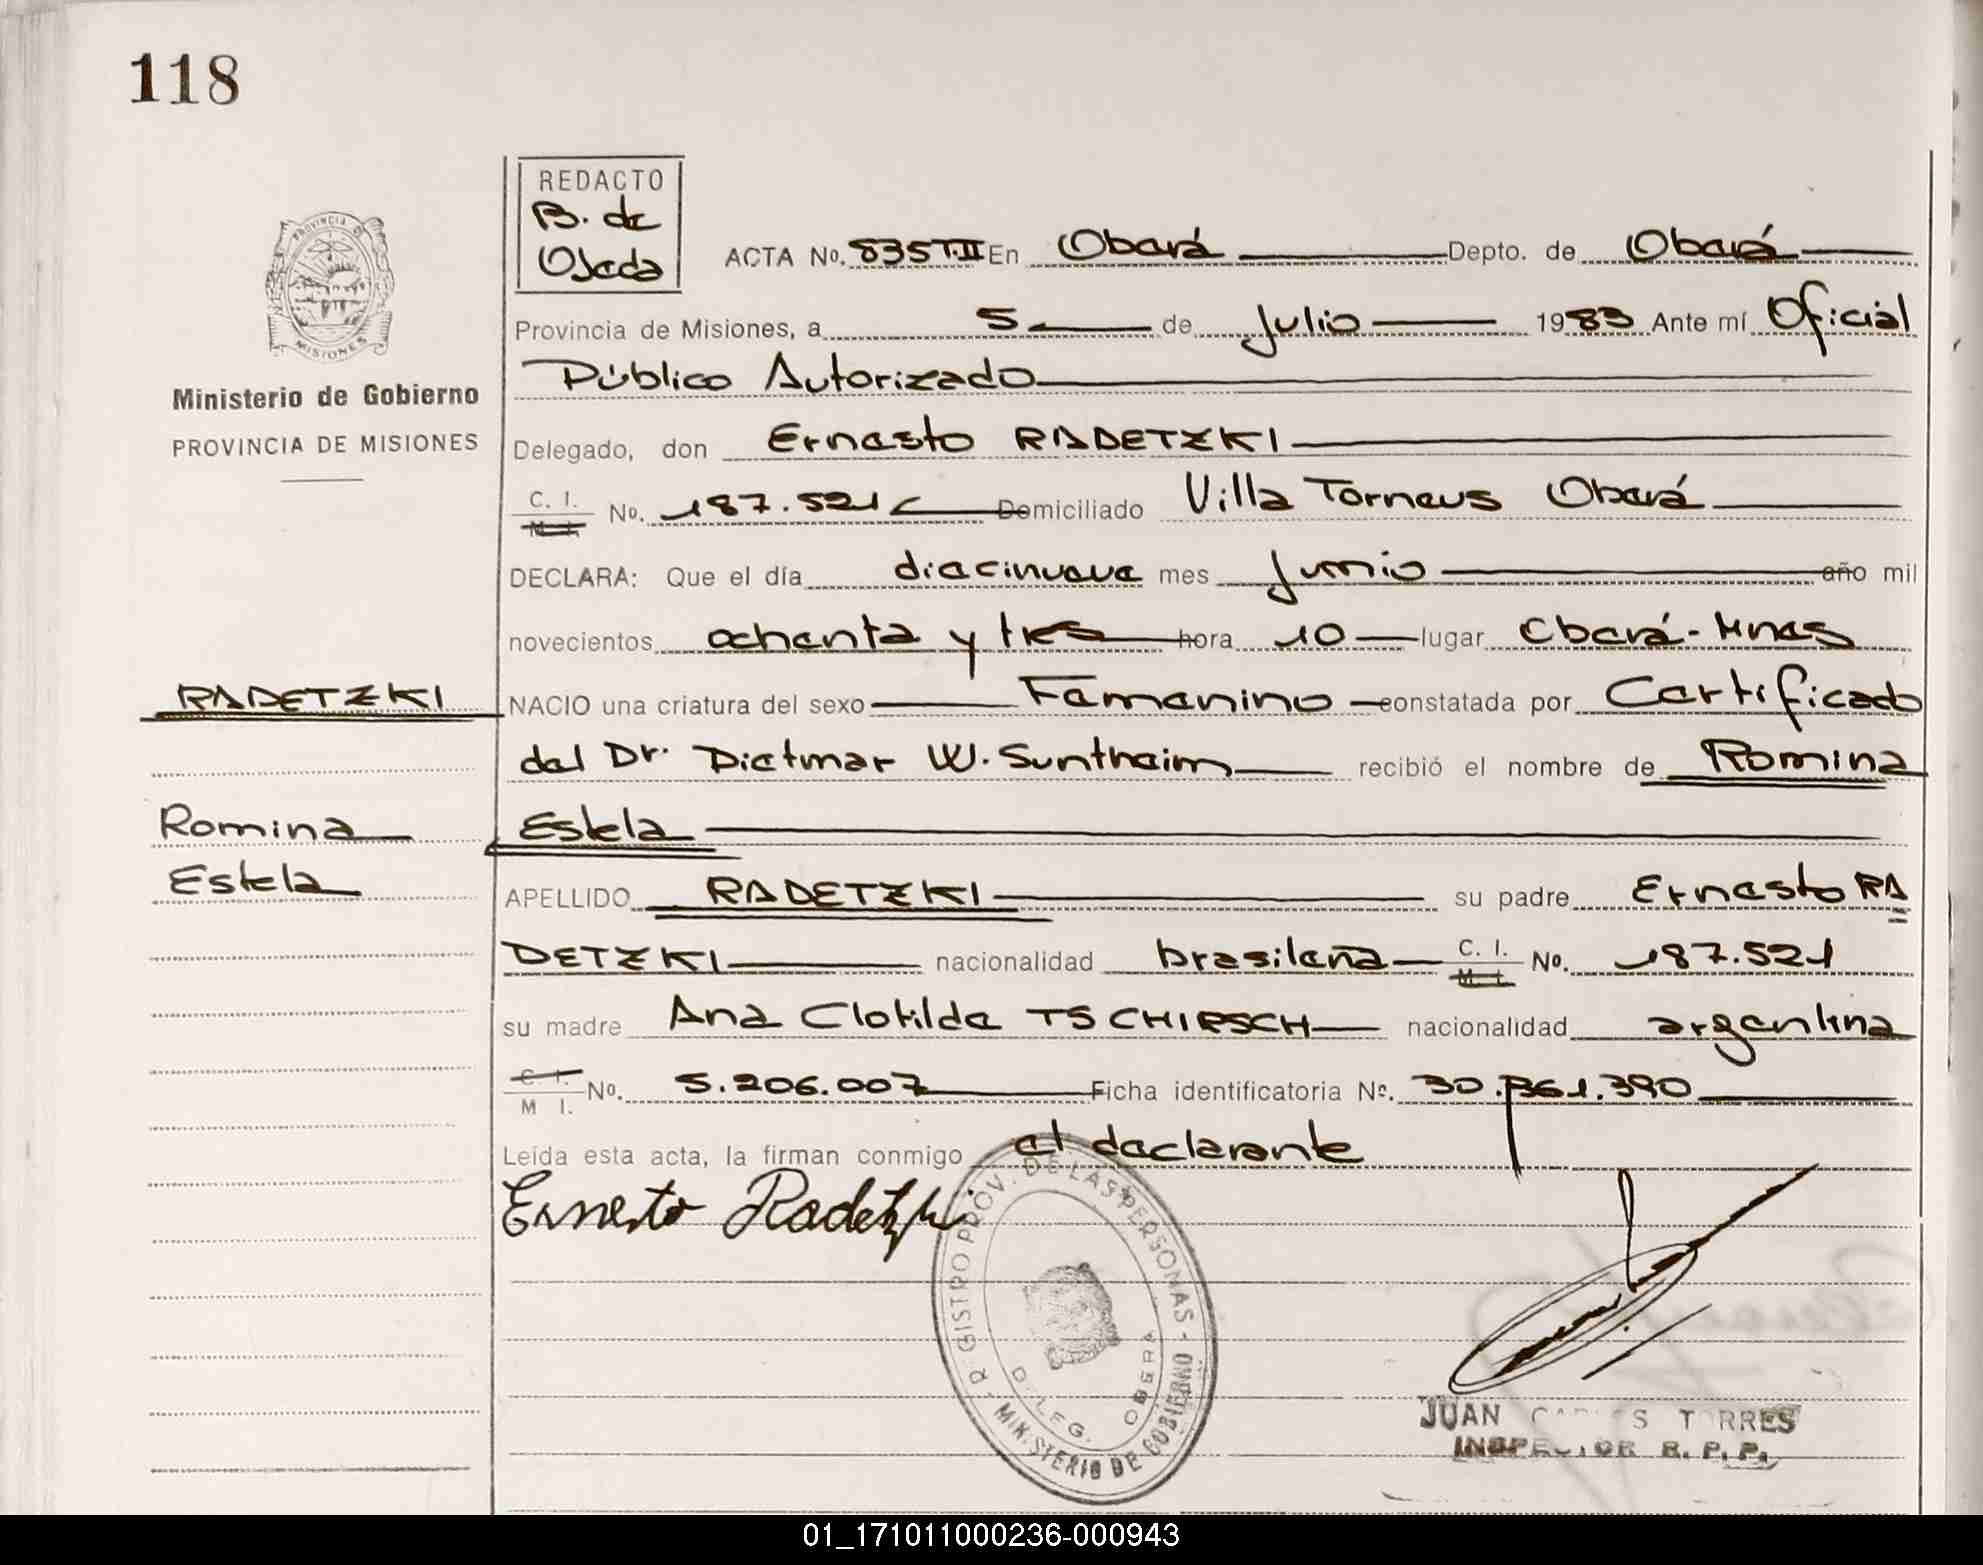 118
REDACTO
B. de
Ojeda
PROVINCIA D
MISIONES
Ministerio de Gobierno
PROVINCIA DE MISIONES
ACTA No. 835 T.II En Oberá Depto. de Oberá
Provincia de Misiones, a 5 de Julio 1983 Ante mí Oficial
Público Autorizado
Delegado, don Ernesto RADETZKI
C. I. M. I. No. 187.521 Domiciliado Villa Torneus Oberá
DECLARA: Que el día diecinueve mes Junio año mil
novecientos ochenta y tres hora 10 lugar Oberá-Mnes
RADETZKI
NACIO una criatura del sexo Femenino constatada por Certificado
del Dr. Dietmar W. Suntheim recibió el nombre de Romina
Romina
Estela
Estela
APELLIDO RADETZKI su padre Ernesto RA
DETZKI nacionalidad brasileña C. I. M. I. No. 187.521
su madre Ana Clotilde TSCHIRSCH nacionalidad argentina
C. I. M I. No. 5.206.007 Ficha identificatoria Nº. 30.361.390
Leída esta acta, la firman conmigo el declarante
Ernesto Radetzki
R GISTRO PROV. DE LAS PERSONAS - MINISTERIO DE GOBIERNO
DELEG. OBERA
JUAN CARLOS TORRES
INSPECTOR R. P. P.
01_171011000236-000943